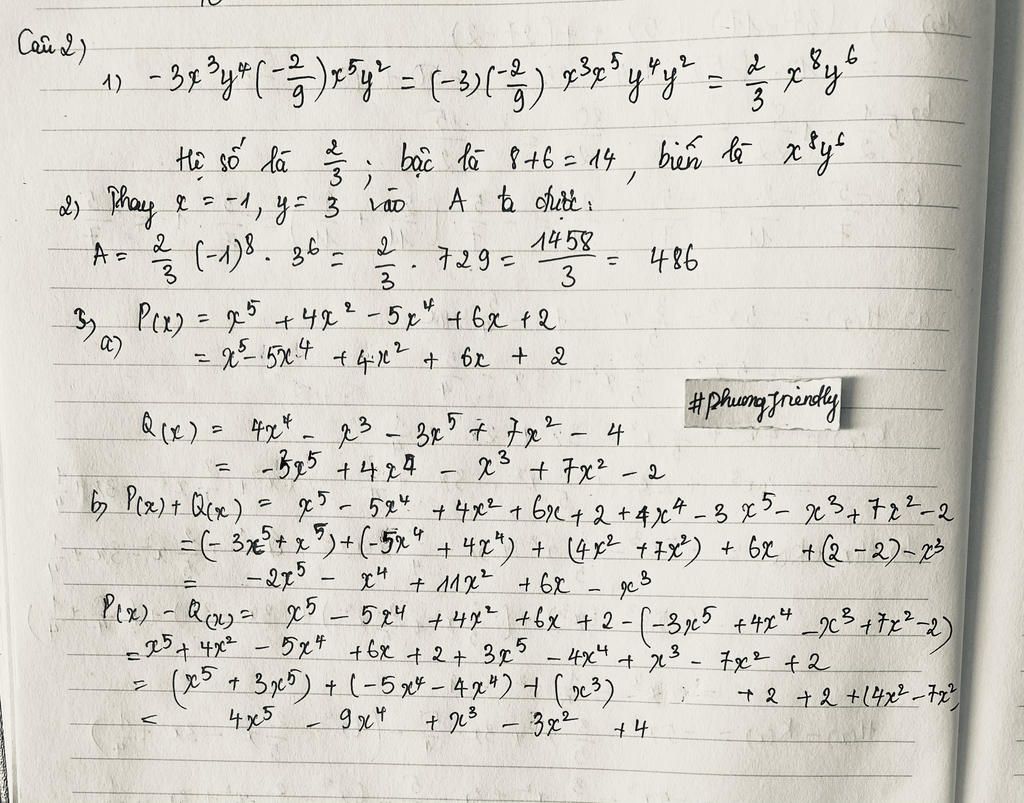 Câu 2)
1) -3x³y⁴(-2/9)x⁵y² = (-3)(-2/9) x³x⁵y⁴y² = 2/3 x⁸y⁶
Hệ số là 2/3; bậc là 8+6=14, biến là x⁸y⁶
2) Thay x = -1, y = 3 vào A ta được:
A = 2/3 (-1)⁸ . 3⁶ = 2/3 . 729 = 1458/3 = 486
3) a) P(x) = x⁵ + 4x² - 5x⁴ + 6x + 2
= x⁵ - 5x⁴ + 4x² + 6x + 2
#phuongfriendly
Q(x) = 4x⁴ - x³ - 3x⁵ + 7x² - 4
= -3x⁵ + 4x⁴ - x³ + 7x² - 2
b) P(x) + Q(x) = x⁵ - 5x⁴ + 4x² + 6x + 2 + 4x⁴ - 3x⁵ - x³ + 7x² - 2
= (-3x⁵ + x⁵) + (-5x⁴ + 4x⁴) + (4x² + 7x²) + 6x + (2 - 2) - x³
= -2x⁵ - x⁴ + 11x² + 6x - x³
P(x) - Q(x) = x⁵ - 5x⁴ + 4x² + 6x + 2 - (-3x⁵ + 4x⁴ - x³ + 7x² - 2)
= x⁵ + 4x² - 5x⁴ + 6x + 2 + 3x⁵ - 4x⁴ + x³ - 7x² + 2
= (x⁵ + 3x⁵) + (-5x⁴ - 4x⁴) + (x³) + 2 + 2 + (4x² - 7x²)
= 4x⁵ - 9x⁴ + x³ - 3x² + 4